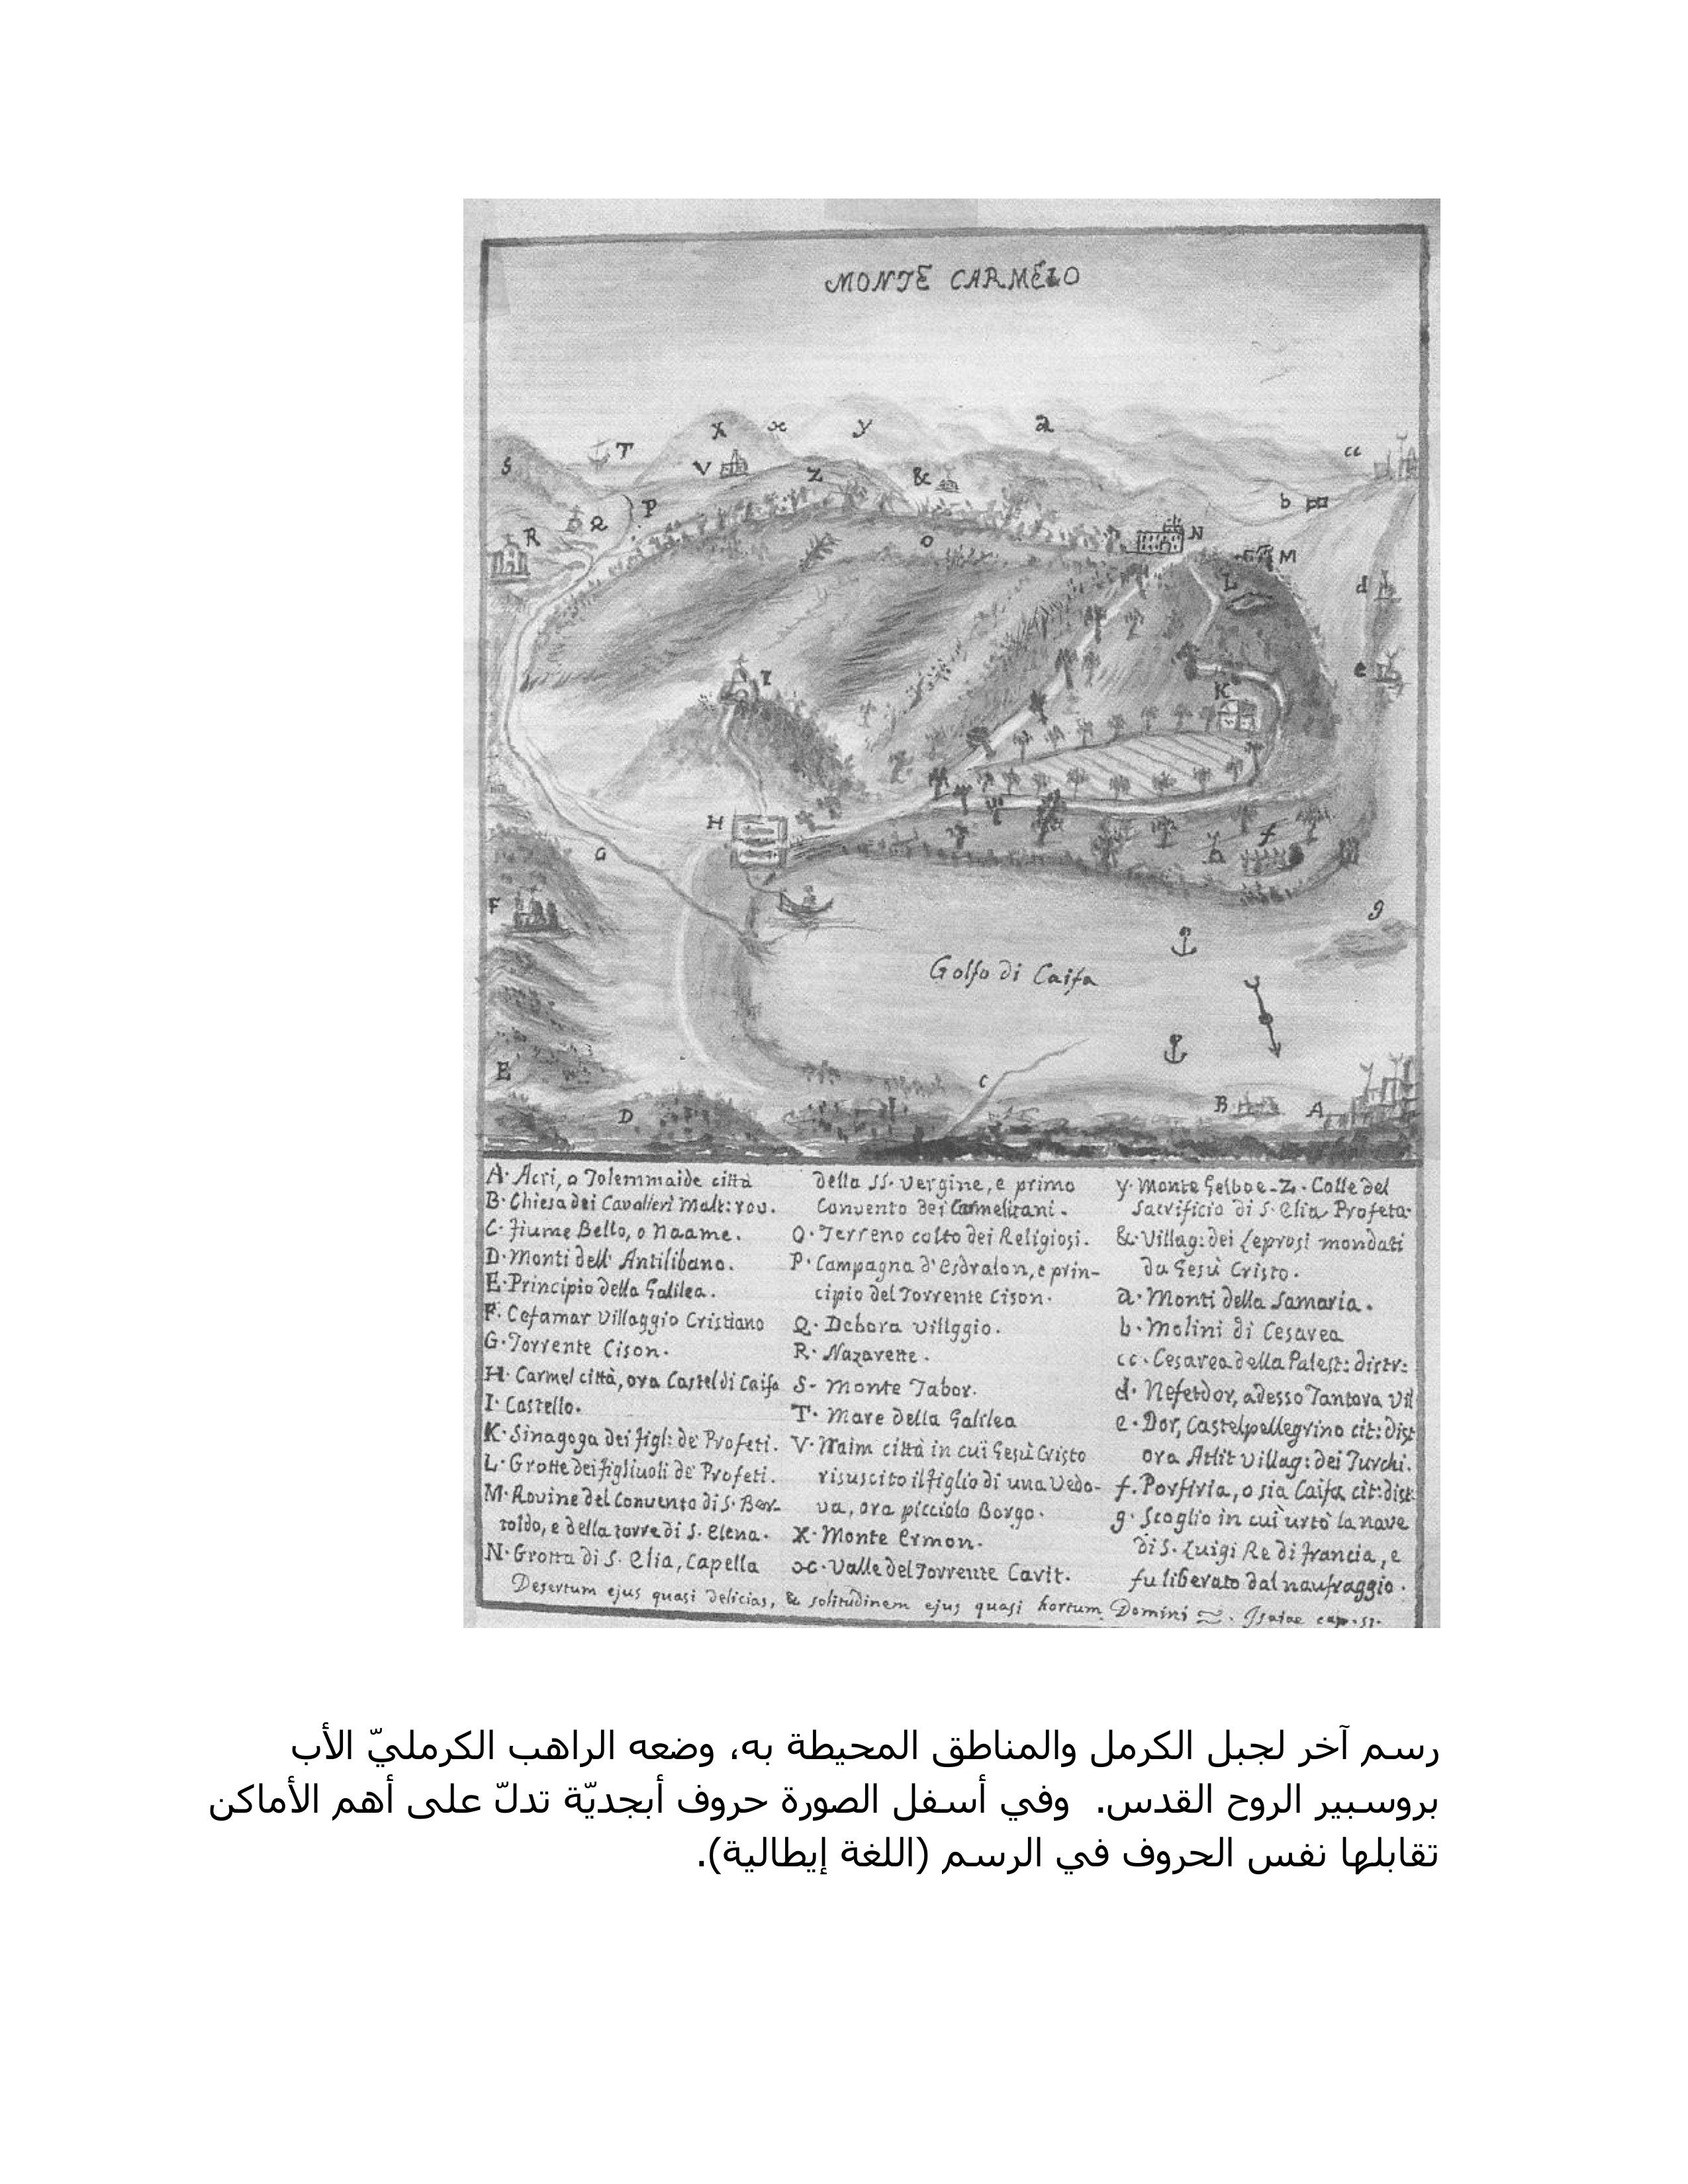 MONTE CARMELO
X x y a
S T cc
V Z &
P b
R Q
O N
M
L d
I K e
H
G f
F g
Golfo di Caifa
E C
D B A
A. Acri, o Tolemmaide città
B. Chiesa dei Cavalieri Malt: rov.
C. Fiume Bello, o Naame.
D. Monti dell' Antilibano.
E. Principio della Galilea.
F. Cefamar Villaggio Cristiano
G. Torrente Cison.
H. Carmel città, ora Castel di Caifa
I. Castello.
K. Sinagoga dei figl: de' Profeti.
L. Grotte dei figliuoli de' Profeti.
M. Rovine del Convento di S. Ber-
toldo, e della torre di S. Elena.
N. Grotta di S. Elia, Capella
della SS. Vergine, e primo
Convento dei Carmelitani.
O. Terreno colto dei Religiosi.
P. Campagna d'Esdralon, e prin-
cipio del Torrente Cison.
Q. Debora villggio.
R. Nazarette.
S. Monte Tabor.
T. Mare della Galilea
V. Naim città in cui Gesù Cristo
risuscito il figlio di una Vedo-
va, ora picciolo Borgo.
X. Monte Ermon.
x. Valle del Torrente Cavit.
y. Monte Gelboe - Z. Colle del
Sacrificio di S. Elia Profeta.
&. Villag: dei Leprosi mondati
da Gesù Cristo.
a. Monti della Samaria.
b. Molini di Cesarea
cc. Cesarea della Palest: distr:
d. Nefetdor, adesso Tantora vil
e. Dor, Castelpellegrino cit: dist
ora Atlit villag: dei Turchi.
f. Porfiria, o sia Caifa cit: dist:
g. Scoglio in cui urtò la nave
di S. Luigi Re di Francia, e
fu liberato dal naufraggio.
Desertum ejus quasi delicias, & solitudinem ejus quasi hortum Domini. Isaiae cap. 51.
رسم آخر لجبل الكرمل والمناطق المحيطة به، وضعه الراهب الكرمليّ الأب
بروسبير الروح القدس. وفي أسفل الصورة حروف أبجديّة تدلّ على أهم الأماكن
تقابلها نفس الحروف في الرسم (اللغة إيطالية).